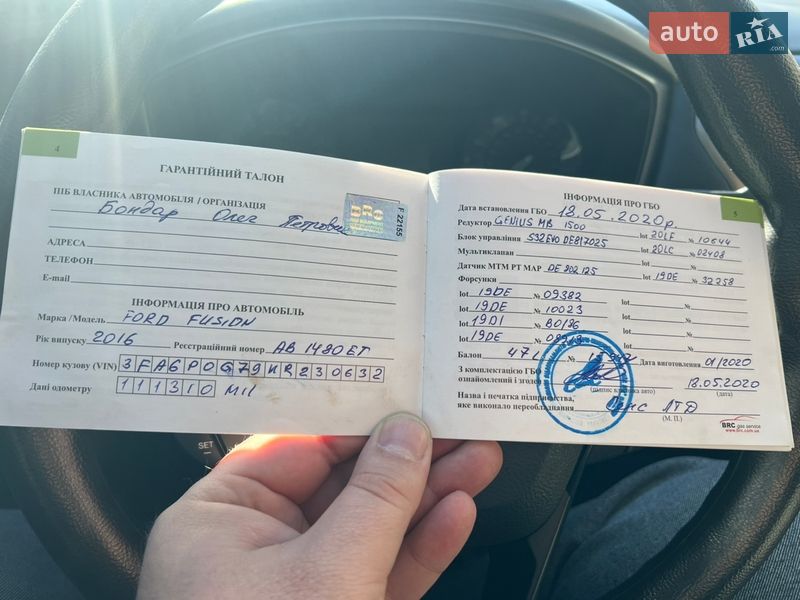 auto RIA .com
4
ГАРАНТІЙНИЙ ТАЛОН
ПІБ ВЛАСНИКА АВТОМОБІЛЯ / ОРГАНІЗАЦІЯ
Бондар Олег Петрович
BRC
F 22155
АДРЕСА
ТЕЛЕФОН
E-mail
ІНФОРМАЦІЯ ПРО АВТОМОБІЛЬ
Марка /Модель FORD FUSION
Рік випуску 2016 Реєстраційний номер АВ 1490 ЕТ
Номер кузову (VIN) 3FA6P0G79HR230632
Дані одометру 111310 Mil
5
ІНФОРМАЦІЯ ПРО ГБО
Дата встановлення ГБО 18.05.2020р
Редуктор GENIUS MB 1500 lot 20LF № 10644
Блок управління S32EVO DE817025 lot 20LC № 02408
Мультиклапан lot №
Датчик МТМ РТ МАР DE 802125 lot 19DE № 32258
Форсунки
lot 19DE № 09382 lot №
lot 19DE № 10023 lot №
lot 19DI № 80136 lot №
lot 19DE № lot №
Балон 47L № Дата виготовлення 01/2020
З комплектацією ГБО
ознайомлений і згоден (підпис власника авто) 18.05.2020 (дата)
Назва і печатка підприємства,
яке виконало переобладнання ЛТД
(М. П.)
BRC gas service
www.brc.com.ua
SET